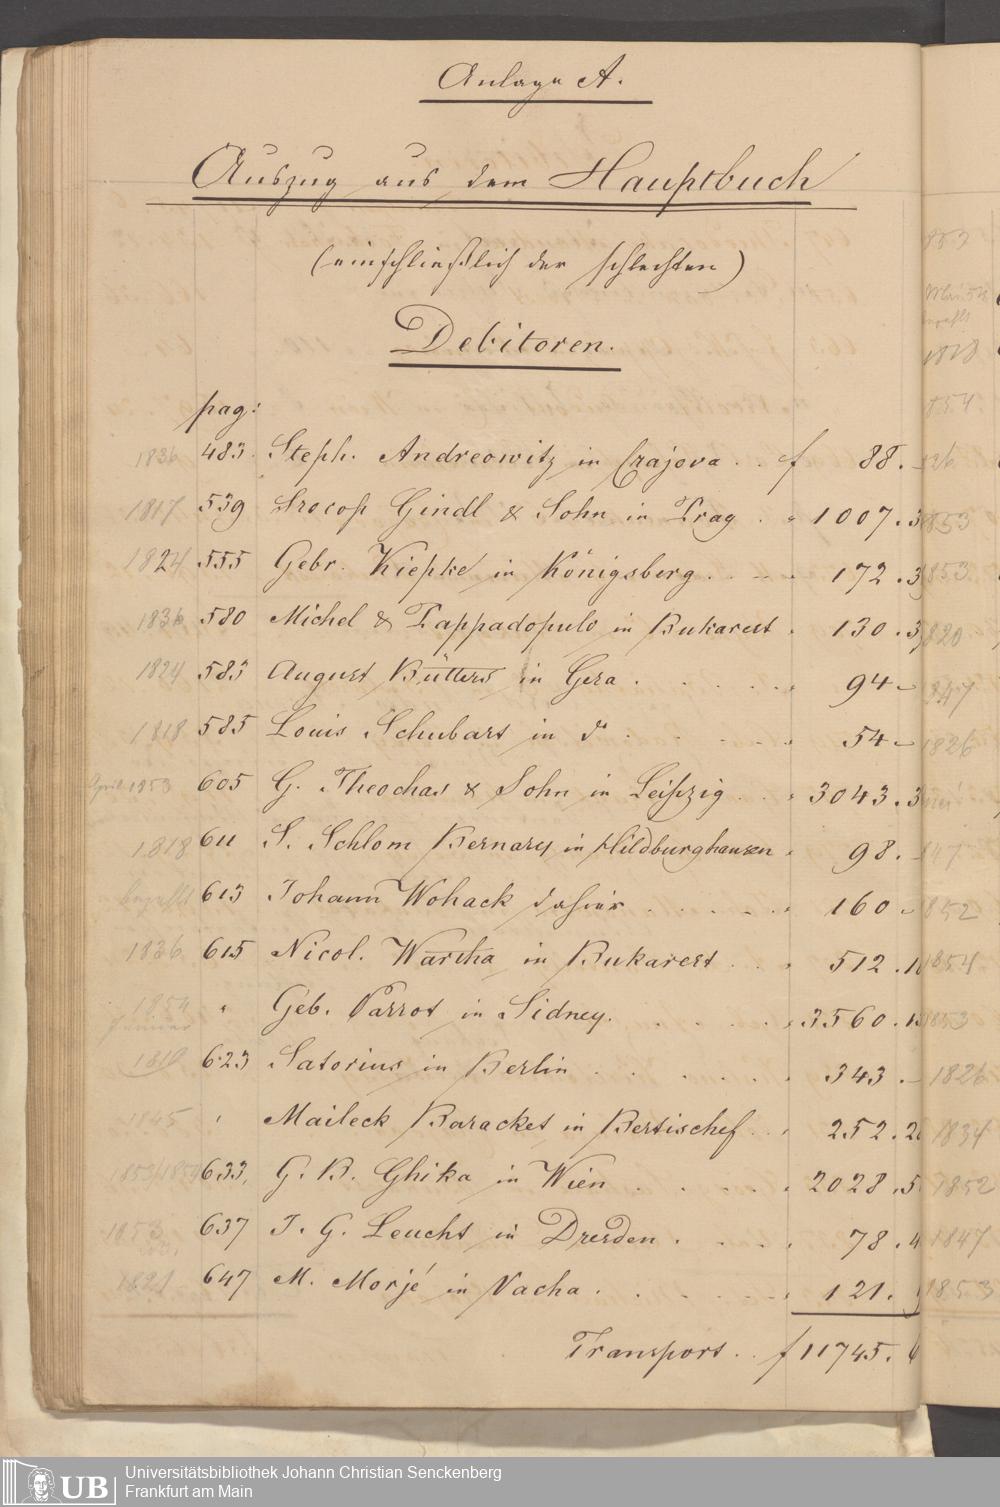 Anlage A.
Auszug aus dem Hauptbuch
(einschließlich der schlechten)
Debitoren.
pag:
1836 483. Steph. Andreowitz in Crajova . . f 88. –
1817 539 Procop Gindl & Sohn in Prag . " 1007. 3
1824 555 Gebr. Kiepke in Königsberg . . . . 172. 3
1836 580 Michel & Pappadopulo in Bukarest . 130. 3
1824 583 August Bütters in Gera . . . . . . 94 –
1818 585 Louis Schubart in do . . . . . 54 –
April 1853 605 G. Theochar & Sohn in Leipzig . . . 3043. 3
1818 611 S. Schlom Bernary in Hildburghausen . 98. –
bezahlt 613 Johann Wohack dahier . . . . . . 160 –
1836 615 Nicol. Wartha in Bukarest . . . 512. 1
1854 Januar " Geb. Parrot in Sidney. . . . . . 3560. 1
1810 623 Satorius in Berlin . . . . . . 343. –
1845 " Maileck Baracket in Bertischef . . . 252. 2
1853/1854 633, G. B. Ghika in Wien . . . . . 2028. 5
1853 637 J. G. Leucht in Dresden . . . . 78. 4
1821 647 M. Morjé in Vacha . . . . . . 121.
Transport . . f 11745.
1853
1818
1854
1826
1853
1853
1820
1847
1826
1847
1852
1854
1853
1826
1834
1852
1847
1853
UB
Universitätsbibliothek Johann Christian Senckenberg
Frankfurt am Main